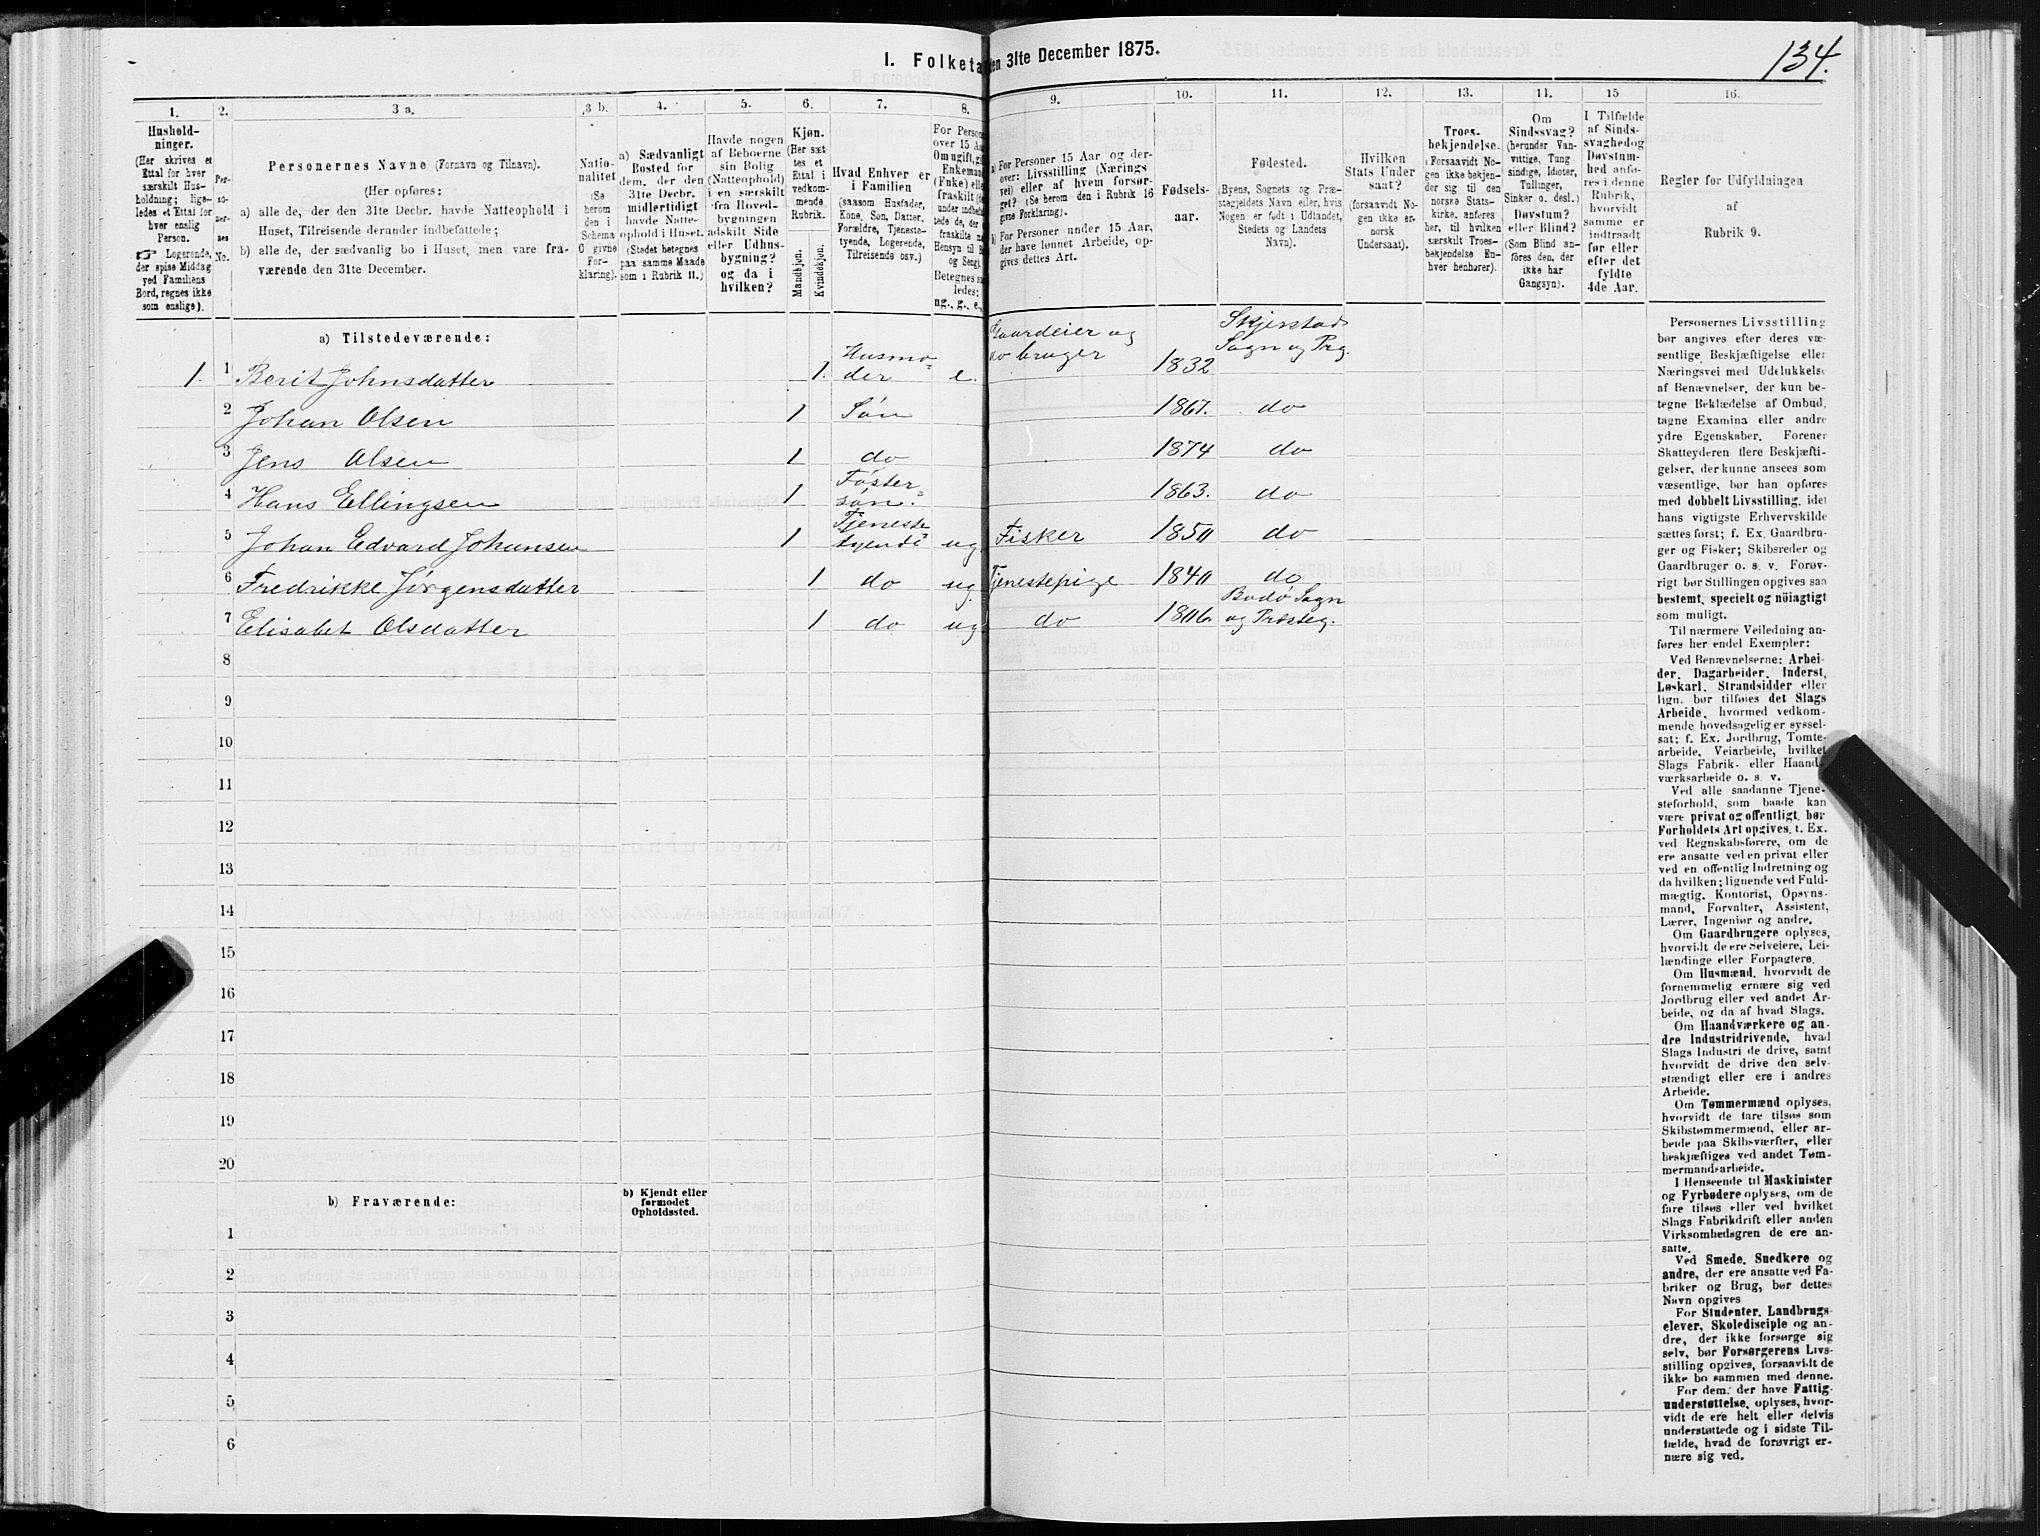 134.
I. Folketa
en 31te December 1875.
1.
2.
3 a.
3 b.
4.
5.
6.
7.
8.
9.
10.
11.
12.
13.
14.
15
16.
Hushold-
ninger.
(Her skrives et
Ettal for hver
særskilt Hus-
holdning; lige-
ledes et Ettal for
hver enslig
Person.
☞ Logerende,
der spise Middag
ved Familiens
Bord, regnes ikke
som enslige).
Per-
so-
ner-
nes
No.
Personernes Navne (Fornavn og Tilnavn).
(Her opføres:
a) alle de, der den 31te Decbr. havde Natteophold i
Huset, Tilreisende derunder indbefattede;
b) alle de, der sædvanlig bo i Huset, men vare fra-
værende den 31te December.
Natio-
nalitet
(Se
herom
den i
Schema
O givne
For-
klaring).
a) Sædvanligt
Bosted for
dem, der den
31te Decbr.
midlertidigt
havde Natte-
ophold i Huset.
(Stedet betegnes
paa samme Maade
som i Rubrik 11.)
Havde nogen
af Beboerne
sin Bolig
(Natteophold)
i en særskilt
fra Hoved-
bygningen
adskilt Side
eller Udhus-
bygning?
og da i
hvilken?
Kjøn.
(Her sæt-
tes et
Ettal i
vedkom-
mende
Rubrik.
Mandkjøn.
Kvindekjøn.
Hvad Enhver er
i Familien
(saasom Husfader,
Kone, Søn, Datter,
Forældre, Tjeneste-
tyende, Logerende,
Tilreisende osv.)
For Persone
over 15 Aa
Om ugift, gif
Enkeman
(Enke) elle
fraskilt
under indbefat
tede de, der e
fraskilte
Hensyn til B
og Seng).
Betegnes s
ledes;
ug., g., e.,
a) For Personer 15 Aar og der-
over: Livsstilling (Nærings
vei) eller af hvem forsør-
get? (Se herom den i Rubrik 16
givne Forklaring).
b) For Personer under 15 Aar,
der have lønnet Arbeide, op-
gives dettes Art.
Fødsels-
aar.
Fødested.
(Byens, Sognets og Præ-
stegjeldets Navn eller, hvis
Nogen er født i Udlandet,
Stedets og Landets
Navn).
Hvilken
Stats Under
saat?
(forsaavidt No-
gen ikke er
norsk
Undersaat).
Troes-
bekjendelse.
(Forsaavidt No-
gen ikke bekjen-
der sig til den
norske Stats-
kirke, anføres
her, til hvilken
særskilt Troes-
bekjendelse En-
hver henhører).
Om
Sindssvag?
(herunder Van-
vittige, Tung
sindige, Idioter,
Tullinger,
Sinker o. desl.)
Døvstum?
eller Blind?
(Som Blind an-
føres den, der
ikke har
Gangsyn).
I Tilfælde
af Sinds-
svaghed og
Døvstum-
hed anfø-
res i denne
Rubrik,
hvorvidt
samme er
indtraadt
før eller
efter det
fyldte
4de Aar.
Regler før Udfyldningen
af
Rubrik 9.
a) Tilstedeværende:
1. 1 Berit Johnsdatter 1. Husmo-
der e. Gaardeier og
bruger 1832 Skjerstads
Sogn og Prg.
2 Johan Olsen 1 Søn 1867. do
3 Jens Olsen 1 do 1874 do
4 Hans Ellingsen 1 Foster-
søn. 1863. do
5 Johan Edvard Johansen 1 Tjeneste
tyende ug Fisker 1850 do
6 Fredrikke Jørgensdatter 1 do ug Tjenestepige 1840 do
7 Elisabet Olsdatter 1 do ug do 1806. Bodø Sogn
og Præsteg.
8
9
10
11
12
13
14
15
16
17
18
19
20
b) Fraværende:
b) Kjendt eller
formodet
Opholdssted.
1
2
3
4
5
6
Personernes Livsstilling
bør angives efter deres væ-
sentlige Beskjæftigelse eller
Næringsvei med Udelukkelse
af Benævnelser, der kun be-
tegne Beklædelse af Ombud,
tagne Examina eller andre
ydre Egenskaber. Forener
Skatteyderen flere Beskjæfti-
gelser, der kunne ansees som
væsentlige, bør han opføres
med dobbelt Livsstilling, idet
hans vigtigste Erhvervskilde
sættes først; f. Ex. Gaardbru-
ger og Fisker; Skibsreder og
Gaardbruger o. s. v. Forøv-
rigt bør Stillingen opgives saa
bestemt, specielt og nöiagtigt
som muligt.
Til nærmere Veiledning an-
føres her endel Exempler:
Ved Benævnelserne: Arbei-
der, Dagarbeider, Inderst,
Løskarl, Strandsidder eller
lign. bør tilføies det Slags
Arbeide, hvormed vedkom-
mende hovedsagelig er syssel-
sat; f. Ex. Jordbrug, Tomte-
arbeide, Veiarbeide, hvilket
Slags Fabrik- eller Haand-
værksarbeide o. s. v.
Ved alle saadanne Tjene-
steforhold, som baade kan
være privat og offentligt, bør
Forholdets Art opgives, t. Ex.
ved Regnskabsførere, om de
ere ansatte ved en privat eller
ved en offentlig Indretning og
da hvilken; lignende ved Fuld-
mægtig, Kontorist, Opsyns-
mand, Forvalter, Assistent,
Lærer, Ingeniør og andre.
Om Gaardbrugere oplyses,
hvorvidt de ere Selveiere, Lei-
lændinge eller Forpagtere.
Om Husmænd, hvorvidt de
fornemmelig ernære sig ved
Jordbrug eller ved andet Ar-
beide, og da af hvad Slags.
Om Haandværkere og an-
dre Industridrivende, hvad
Slags Industri de drive, samt
hvorvidt de drive den selv-
stændigt eller ere i andres
Arbeide.
Om Tømmermænd oplyses,
hvorvidt de fare tilsøs som
Skibstømmermænd, eller ar-
beide paa Skibsværfter, eller
beskjæftiges ved andet Tøm-
mermandsarbeide.
I Henseende til Maskinister
og Fyrbødere oplyses, om de
fare tilsøs eller ved hvilket
Slags Fabrikdrift eller anden
Virksomhedsgren de ere an-
satte.
Ved Smede, Snedkere og
andre, der ere ansatte ved Fa-
briker og Brug, bør dettes
Navn opgives
For Studenter, Landbrugs-
elever, Skoledisciple og an-
dre, der ikke forsørge sig
selv, bør Forsørgerens Livs-
stilling opgives, forsaavidt de
ikke bo sammen med denne.
For dem, der have Fattig-
understøttelse, oplyses, hvor-
vidt de ere helt eller delvis
understøttede og i sidste Til-
fælde, hvad de forøvrigt er-
nære sig ved.